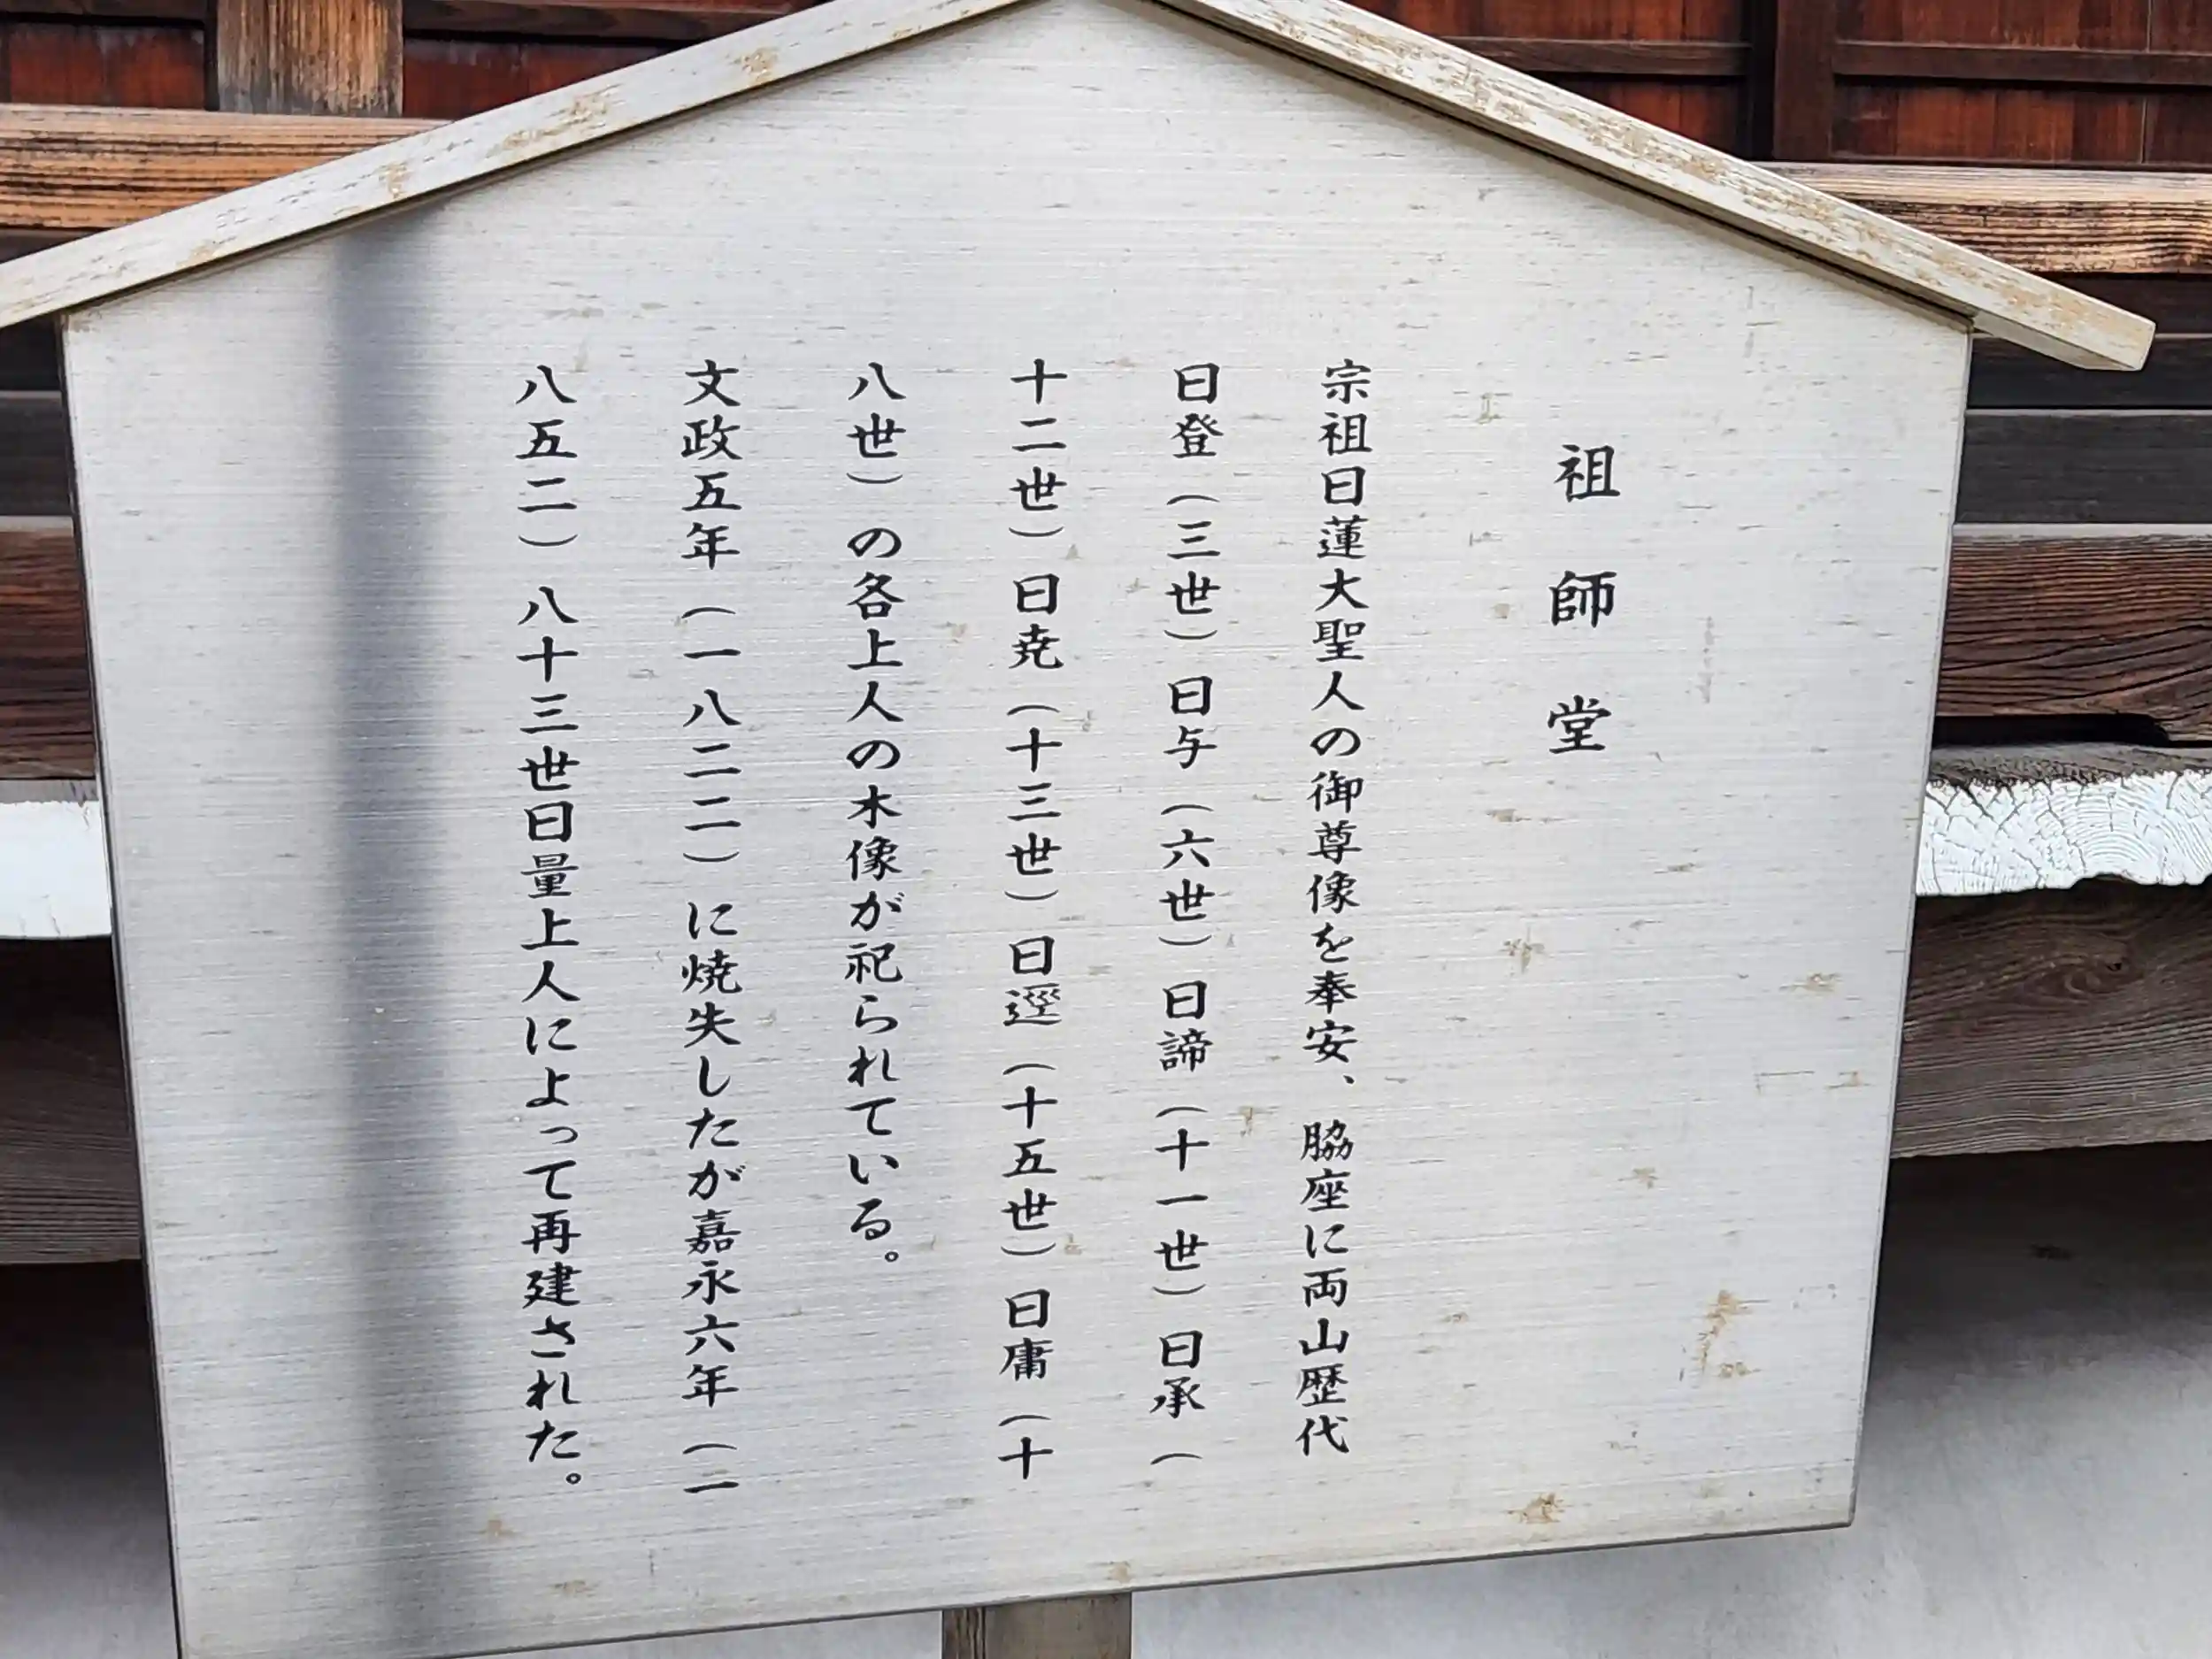 祖師堂
宗祖日蓮大聖人の御尊像を奉安、脇座に両山歴代
日登（三世）日与（六世）日諦（十一世）日承（
十二世）日尭（十三世）日逕（十五世）日庸（十
八世）の各上人の木像が祀られている。
文政五年（一八二二）に焼失したが嘉永六年（一
八五二）八十三世日量上人によって再建された。